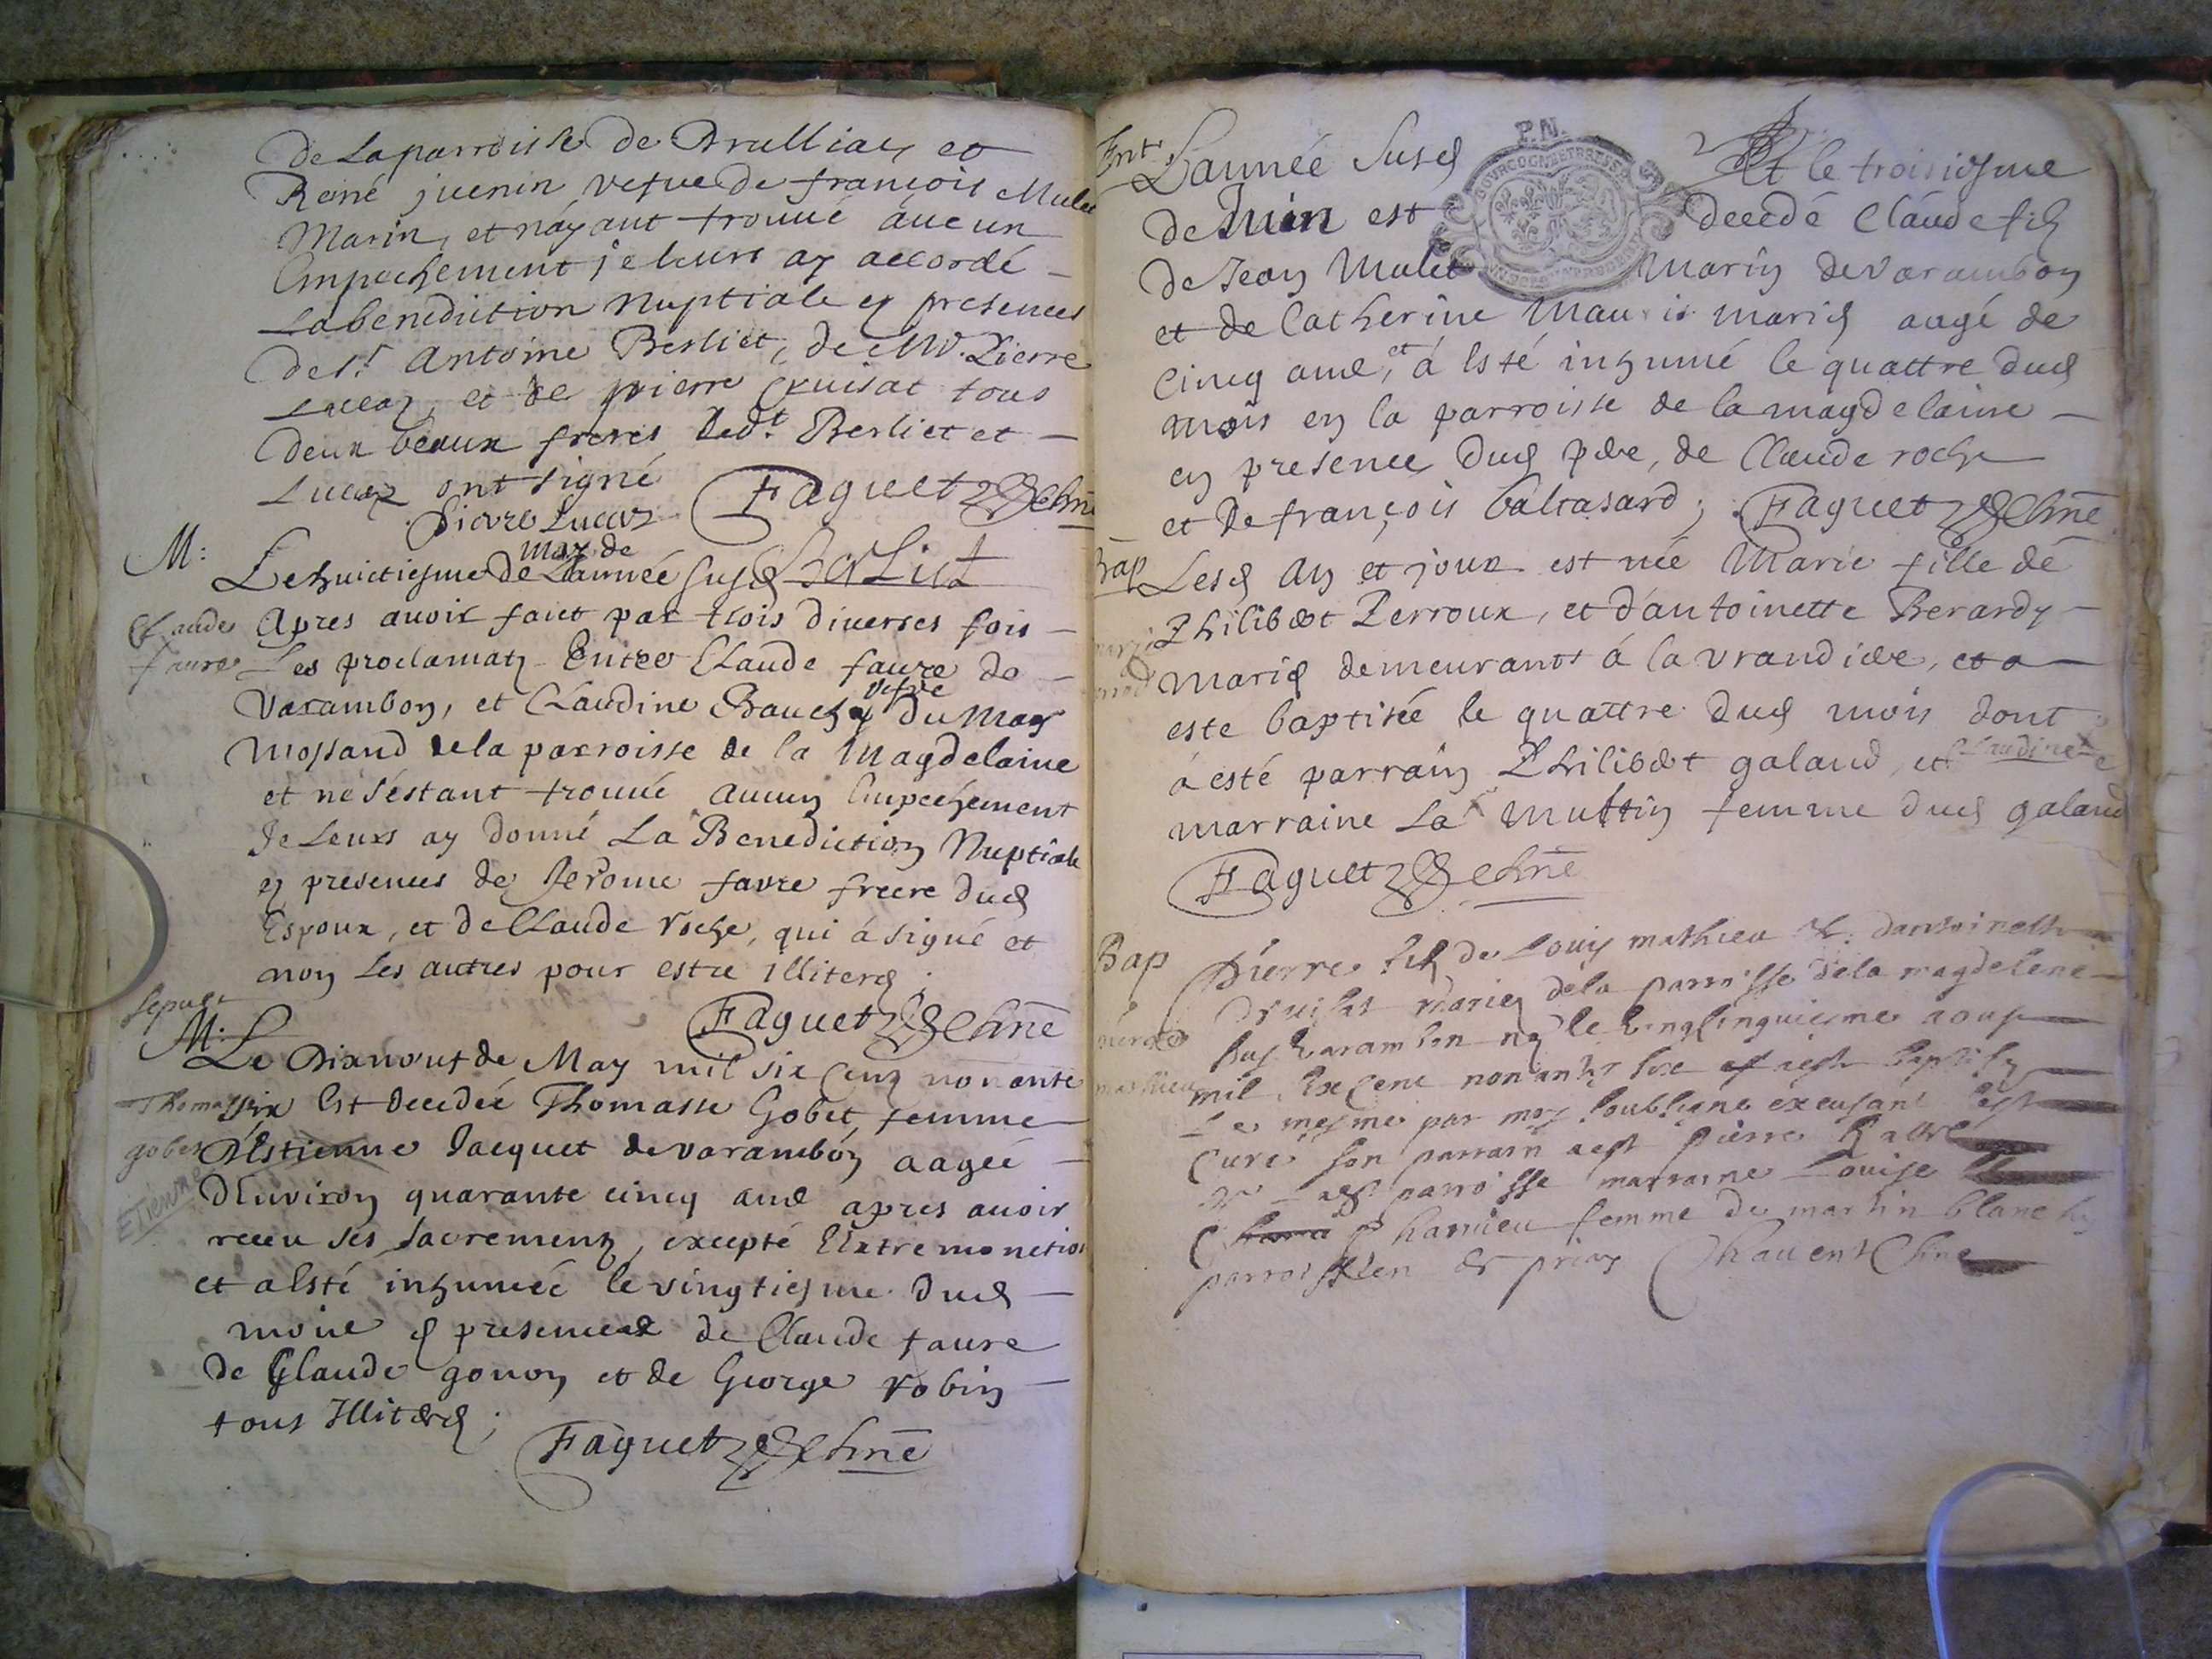 De La parroisse De Drulliay et
René juenin vefve De françois Mulet
Marin, et n'ayant trouué áucun
Empechement je leurs ay accordé
La benediction Nuptiale en presences
De sr. Antoine Berliet, de Mr. Pierre
Lucas, et de pierre Cruisat tous
deux beaux freres dud.t Berliet et
Lucas ont signé Faguet chne
Pierre Lucas
M: may de
Le huictiesme De L'année susd Berliet
Claude Apres auoir faict par trois diuerses fois
faure Les proclamatz Entre Claude faure de
vefve
Varambon, et Claudine Bauchy du Mas
Mossand de la parroisse de la Magdelaine
et ne s'éstant trouué Aucun Empechement
Je Leurs ay donné La Benediction Nuptiale
en presences de Jerome favre frere dud
Espoux, et de Claude roche, qui á signé et
non les autres pour estre illiterés;
Sepult Faguet chne
M: Le Dixneuf de May mil six Cens nonante
Thomasse six Est decedée Thomasse Gobet, femme
gobet d'Estienne Jacquet de varambon aagée
Etienne d'Enuiron quarante cinq ans apres auoir
receu ses Sacrements, excepté l'Extremonction
et a Esté inhumée le vingtiesme dud
mois en presences de Claude faure
de Claude gonon et de George robin
tous Illiterés;
Faguet chne
Ent. L'année Susd Et le troisiesme
de Juin est decedé Claude fils
de Jean Mulet Marin de varambon
et de Catherine Mauris mariés aagé de
cinq ans, et á Esté inhumé le quattre dud
mois en la parroisse de la magdelaine
en presence dud pere, de Claude roche
et de françois baltasard; Faguet chne
Bap Lesd An et jour est née Marie fille de
Philibert Perroux, et d'antoinette Berardy
Mariés demeurants á la vrandiere, et a
este baptisée le quattre dud mois dont
á esté parrain Philibert galand, et Claudine
marraine La Muttin femme dud galand
Faguet chne
Bap Pierre fils de Louis mathieu et d'antoinette
Druisat mariez de la parroisse de la magdelene
sus varambon né le vingcinquiesme aoust
mathieu mil six cent nonante six et a esté baptisé
Le mesme par moy soubsigné excusant
Curé son parrain a est pierre
parroisse marraine Louise
femme de martin blanc
parroissien
P.N.